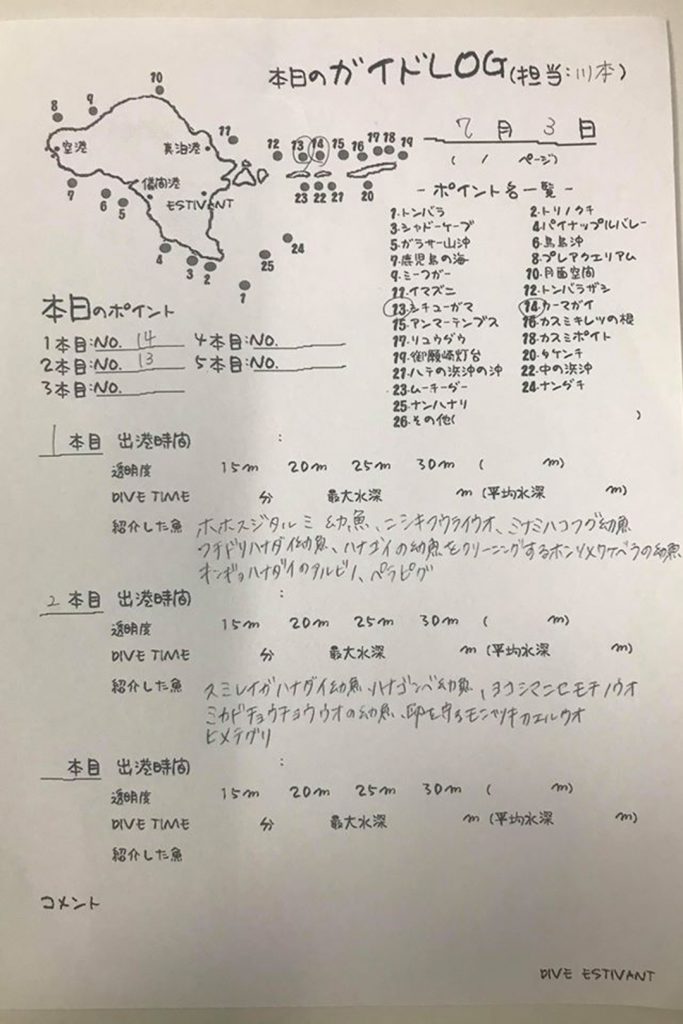 本日のガイドLOG(担当:川本)
7月3日
( / ページ)
10
8 9
空港 真泊港
11
儀間港
ESTIVANT
7 6 5
4 3 2 1
24
25
12 13 14 15 16 17 18 19
23 22 21 20
-ポイント名一覧-
1.トンバラ 2.トリノクチ
3.シャドーケーブ 4.パイナップルバレー
5.ガラサー山沖 6.鳥島沖
7.鹿児島の海 8.プレアクエリアム
9.ミーフガー 10.月面空間
11.イマズニ 12.トンバラザシ
13.シチューガマ 14.ウーマガイ
15.アンマーテンプス 16.カスミキレツの根
17.リュウグウ 18.カスミポイト
19.御願崎灯台 20.タケンチ
21.ハテの浜沖の沖 22.中の浜沖
23.ムーチーグー 24.ナングチ
25.ナンハナリ
26.その他( )
本日のポイント
1本目:NO. 14 4本目:NO.
2本目:NO. 13 5本目:NO.
3本目:NO.
1本目 出港時間 :
透明度 15m 20m 25m 30m ( m)
DIVE TIME 分 最大水深 m (平均水深 m)
紹介した魚 ホホスジタルミ幼魚、ニシキフウライウオ、ミナミハコフグ幼魚
フチドリハナダイ幼魚、ハナゴイの幼魚をクリーニングするホンソメワケベラの幼魚
キンギョハナダイのアルビノ、ペラピグ
2本目 出港時間 :
透明度 15m 20m 25m 30m ( m)
DIVE TIME 分 最大水深 m (平均水深 m)
紹介した魚 スミレナガハナダイ幼魚、ハナゴンベ幼魚、ヨコシマニセモチノウオ
ミカドチョウチョウウオの幼魚、卵を守るモンツキカエルウオ
ヒメテグリ
本目 出港時間 :
透明度 15m 20m 25m 30m ( m)
DIVE TIME 分 最大水深 m (平均水深 m)
紹介した魚
コメント
DIVE ESTIVANT